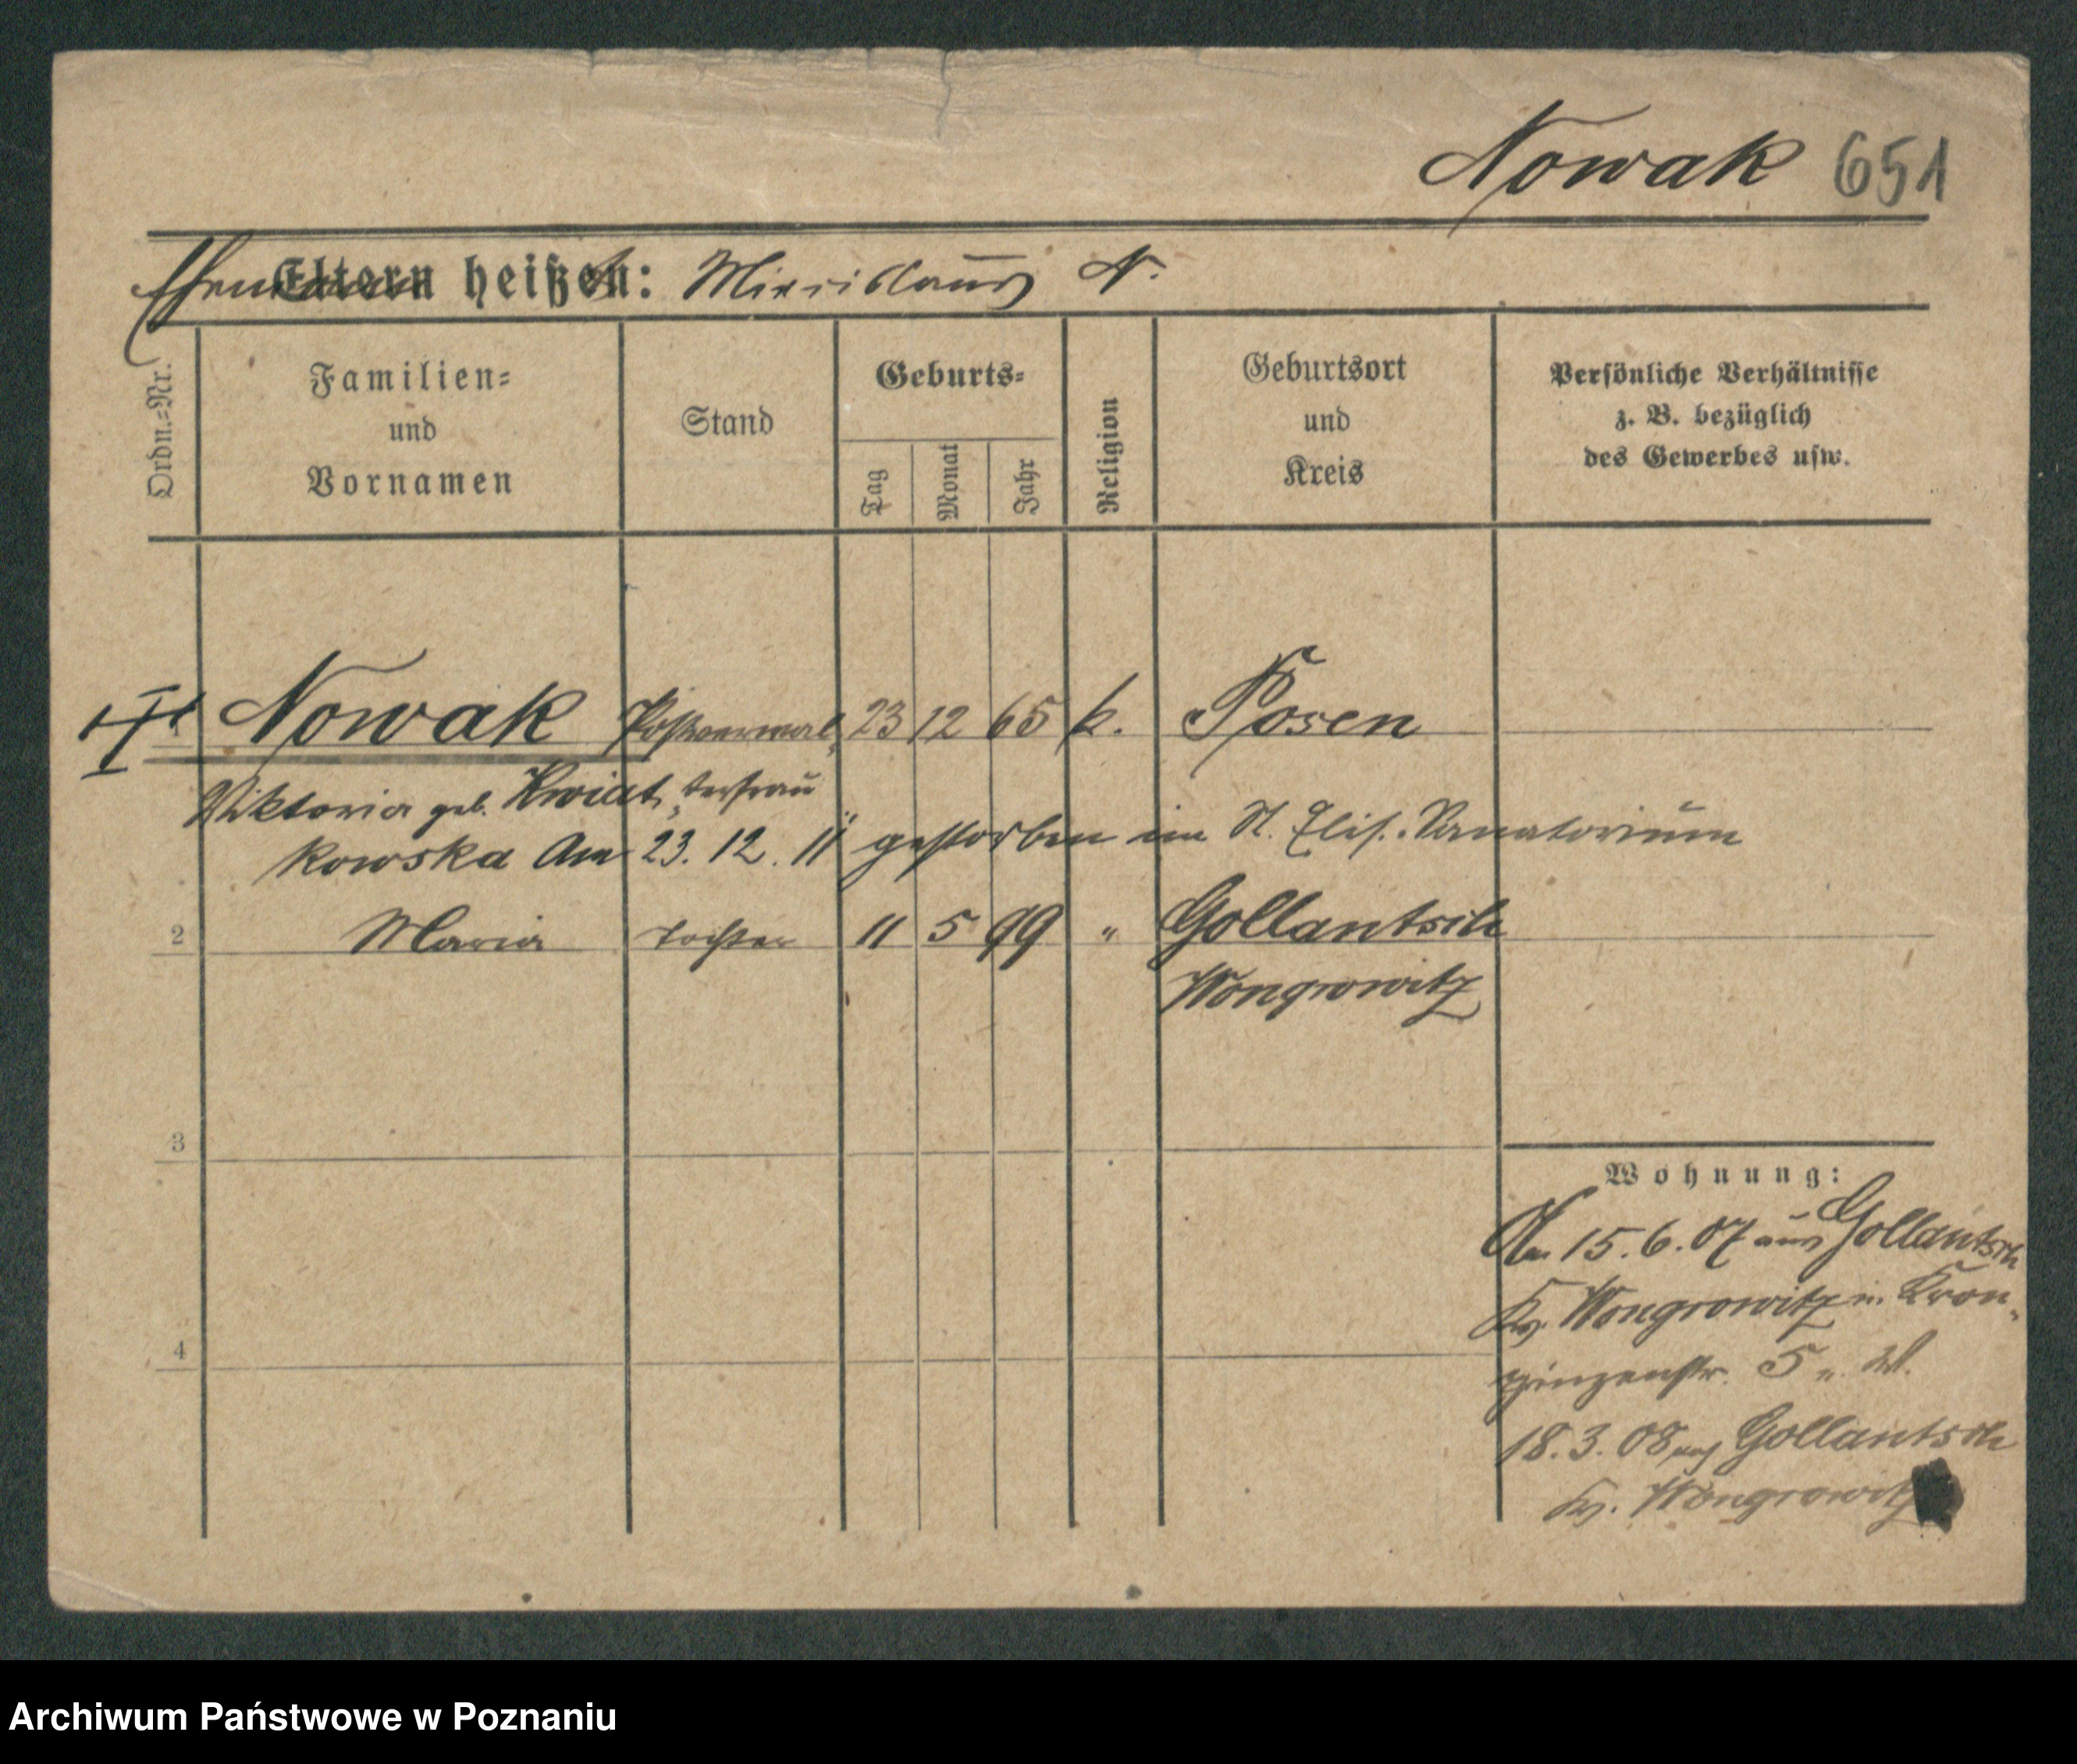 Nowak 651
Ehemann Eltern heißen: Miecislaus N.
Ordn.=Nr.
Familien=
und
Vornamen
Stand
Geburts=
Tag
Monat
Jahr
Religion
Geburtsort
und
Kreis
Persönliche Verhältnisse
z. B. bezüglich
des Gewerbes usw.
Nowak Postverwal= 23 12 65 k. Posen
Viktoria geb. Kwiat= tersfrau
kowska Am 23. 12. 11 gestorben im St. Elis. Sanatorium
2 Maria Tochter 11 5 99 " Gollantsch
Wongrowitz
3
4
Wohnung:
Am 15. 6. 07 aus Gollantsch
Kr. Wongrowitz n. Kron=
prinzenstr. 5
18. 3. 08 nach Gollantsch
Kr. Wongrowitz
Archiwum Państwowe w Poznaniu